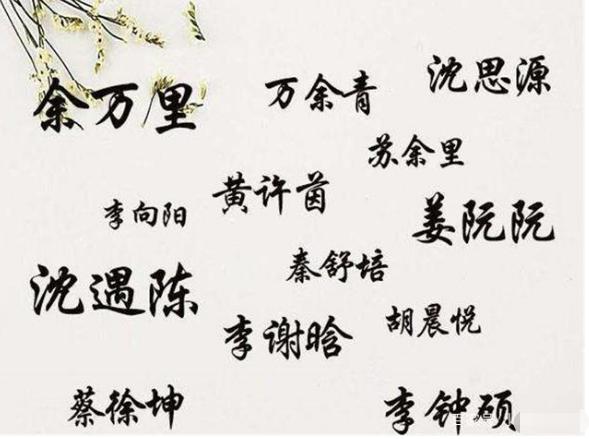 沈思源
万余青
余万里
苏余里
黄许茵
李向阳
姜阮阮
秦舒培
沈遇陈
胡晨悦
李谢晗
蔡徐坤
李钟硕